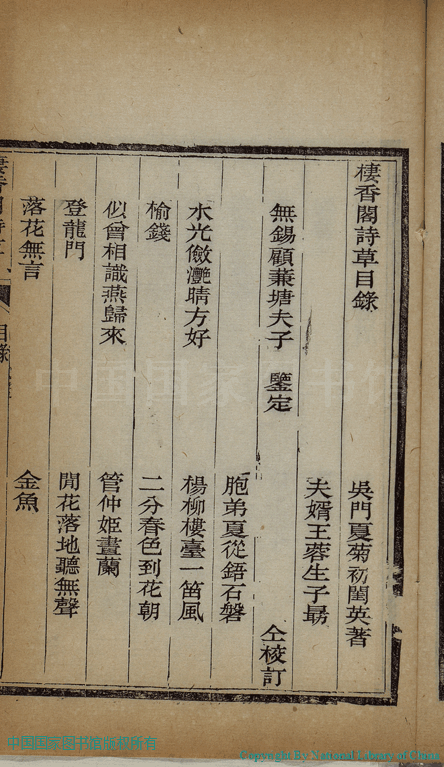 棲香閣詩草目錄
吳門夏菊初閨英著
無錫顧蒹塘夫子 鑒定
夫婿王蓉生子勗
胞弟夏從鋙石磐
仝校訂
水光儆灧晴方好
楊柳樓臺一笛風
榆錢
二分春色到花朝
似曾相識燕歸來
管仲姬畫蘭
登龍門
閒花落地聽無聲
落花無言
金魚
棲香閣詩草
目錄
中国国家图书馆
中国国家图书馆版权所有
Copyright By National Library of China